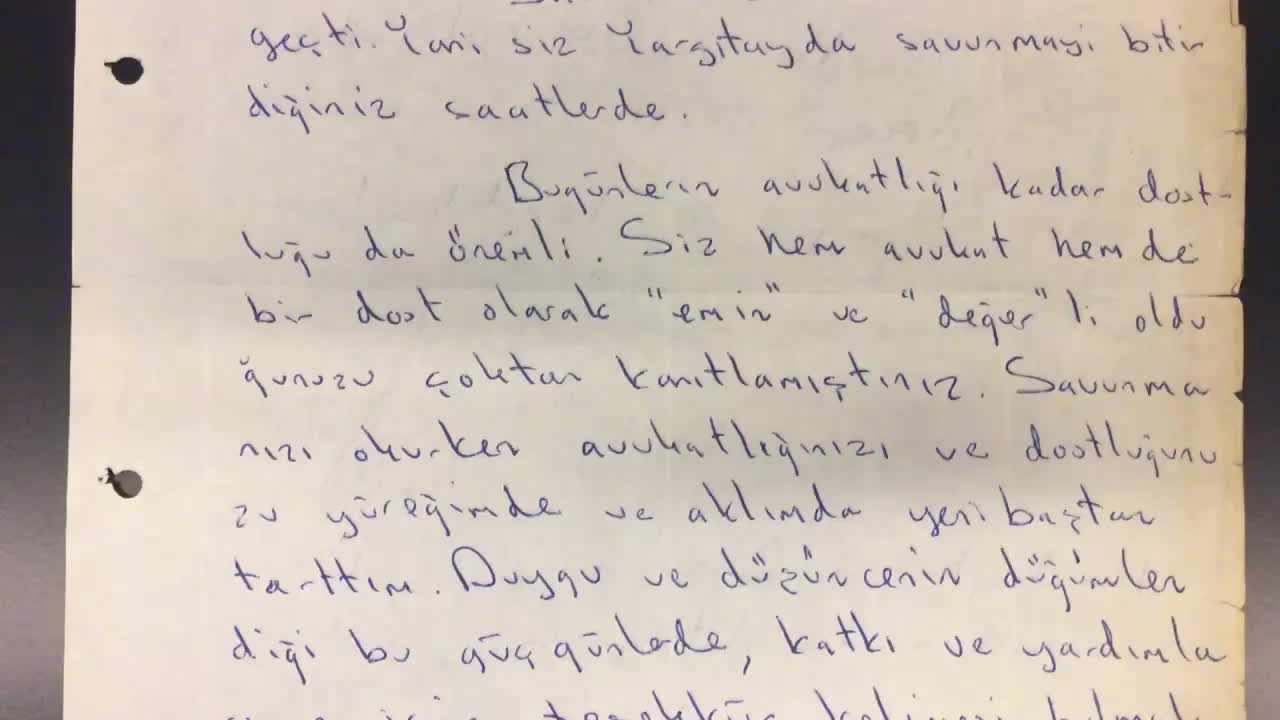 geçti. Yani siz Yargıtayda savunmayi bitir
diğiniz saatlerde.
Bugünlerin avukatlığı kadar dost-
luğu da önemli. Siz hem avukat hem de
bir dost olarak "emin" ve "değer"li oldu
ğunuzu çoktan kanıtlamıştınız. Savunma
nızı okurken avukatlığınızı ve dostluğunu
zu yüreğimde ve aklımda yeni baştan
tarttım. Duygu ve düşüncenin düğümlen
diği bu güç günlerde, katkı ve yardımla
için teşekkür kelimesi